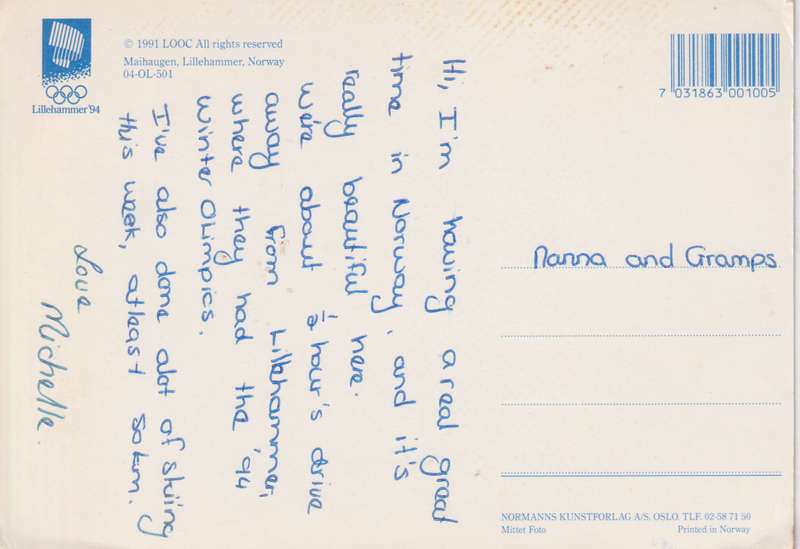 Lillehammer '94
© 1991 LOOC All rights reserved
Maihaugen, Lillehammer, Norway
04-OL-501
7 031863 001005
Hi, I'm having a real great
time in Norway, and it's
really beautiful here.
We're about ½ hour's drive
away from Lillehammer,
where they had the '94
Winter Olimpics.
I've also done alot of skiing
this week, atleast 50km.
Love
Michelle.
Nanna and Gramps
NORMANNS KUNSTFORLAG A/S. OSLO. TLF. 02-58 71 50
Mittet Foto
Printed in Norway